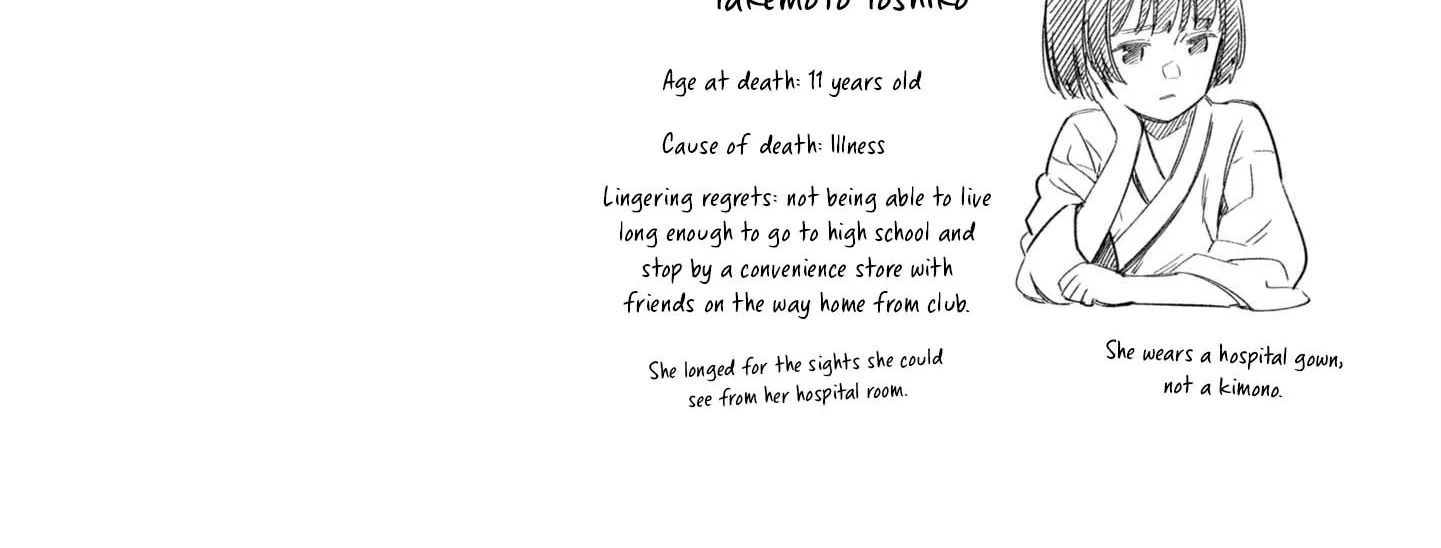 Takemoto Yoshiko
Age at death: 11 years old
Cause of death: Illness
Lingering regrets: not being able to live
long enough to go to high school and
stop by a convenience store with
friends on the way home from club.
She longed for the sights she could
see from her hospital room.
She wears a hospital gown,
not a kimono.